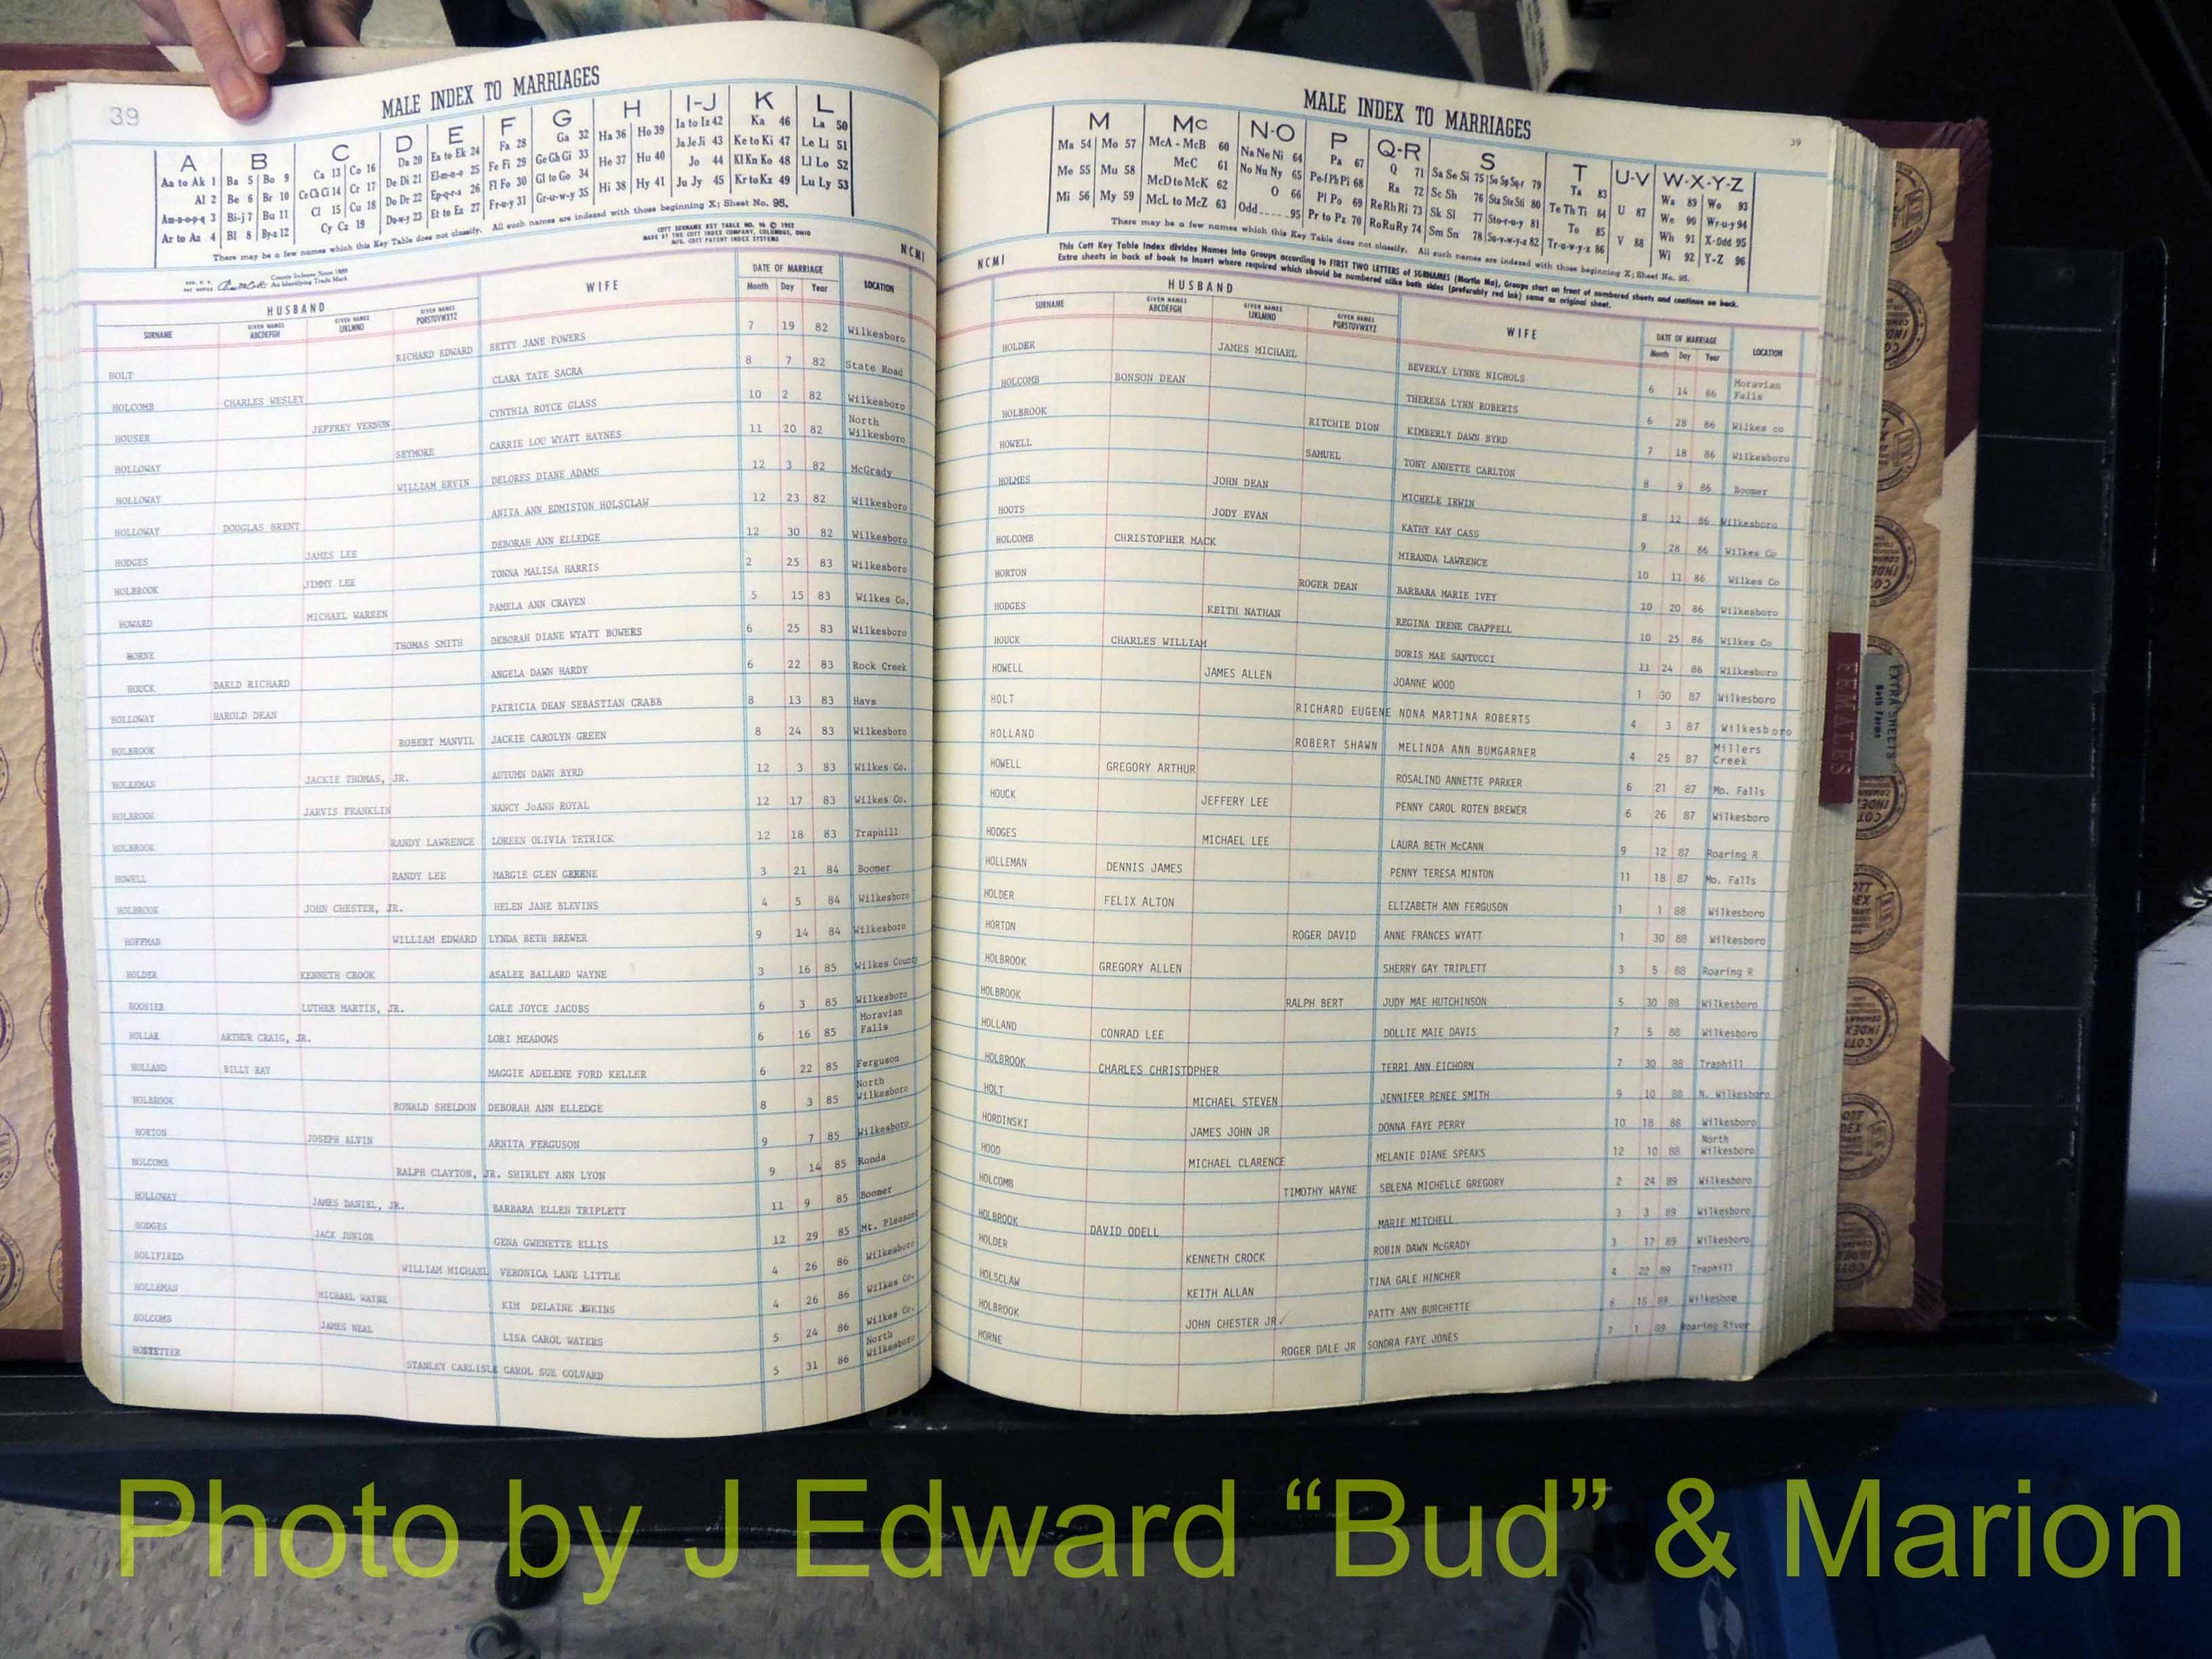 39
MALE INDEX TO MARRIAGES
A B C D E F G H I-J K L
Aa to Ak 1 Ba 5 Bo 9 Ca 13 Co 16 Da 20 Ea to Ek 24 Fa 28 Ga 32 Ha 36 Ho 39 Ia to Iz 42 Ka 46 La 50
Al 2 Be 6 Br 10 Ce Ch Ci 14 Cr 17 De Di 21 El-m-n-o 25 Fe Fi 29 Ge Gh Gi 33 He 37 Hu 40 Ja Je Ji 43 Ke to Ki 47 Le Li 51
Am-n-o-p-q 3 Bi-j 7 Bu 11 Cl 15 Cu 18 Do Dr 22 Ep-q-r-s 26 Fl Fo 30 Gl to Go 34 Hi 38 Hy 41 Jo 44 Kl Kn Ko 48 Ll Lo 52
Ar to Az 4 Bl 8 By-z 12 Cy Cz 19 Du-w-y 23 Et to Ez 27 Fr-u-y 31 Gr-u-w-y 35 Ju Jy 45 Kr to Kz 49 Lu Ly 53
There may be a few names which this Key Table does not classify. All such names are indexed with those beginning X; Sheet No. 95.
COTT SURNAME KEY TABLE NO. 96 © 1952
MADE BY THE COTT INDEX COMPANY, COLUMBUS, OHIO
MFG. COTT PATENT INDEX SYSTEMS
NCMI
County Indexes Since 1888
An Identifying Trade Mark
HUSBAND WIFE DATE OF MARRIAGE LOCATION
SURNAME GIVEN NAMES ABCDEFGH GIVEN NAMES IJKLMNO GIVEN NAMES PQRSTUVWXYZ Month Day Year
HOLT RICHARD EDWARD BETTY JANE POWERS 7 19 82 Wilkesboro
HOLCOMB CHARLES WESLEY CLARA TATE SACRA 8 7 82 State Road
HOUSER JEFFREY VERNON CYNTHIA ROYCE GLASS 10 2 82 Wilkesboro
HOLLOWAY SEYMORE CARRIE LOU WYATT HAYNES 11 20 82 North Wilkesboro
HOLLOWAY WILLIAM ERVIN DELORES DIANE ADAMS 12 3 82 McGrady
HOLLOWAY DOUGLAS BRENT ANITA ANN EDMISTON HOLSCLAW 12 23 82 Wilkesboro
HODGES JAMES LEE DEBORAH ANN ELLEDGE 12 30 82 Wilkesboro
HOLBROOK JIMMY LEE TONNA MALISA HARRIS 2 25 83 Wilkesboro
HOWARD MICHAEL WARREN PAMELA ANN CRAVEN 5 15 83 Wilkes Co.
HORNE THOMAS SMITH DEBORAH DIANE WYATT BOWERS 6 25 83 Wilkesboro
HOUCK DARLD RICHARD ANGELA DAWN HARDY 6 22 83 Rock Creek
HOLLOWAY HAROLD DEAN PATRICIA DEAN SEBASTIAN CRABB 8 13 83 Hays
HOLBROOK ROBERT MANVIL JACKIE CAROLYN GREEN 8 24 83 Wilkesboro
HOLLEMAN JACKIE THOMAS, JR. AUTUMN DAWN BYRD 12 3 83 Wilkes Co.
HOLBROOK JARVIS FRANKLIN NANCY JoANN ROYAL 12 17 83 Wilkes Co.
HOLBROOK RANDY LAWRENCE LOREEN OLIVIA TETRICK 12 18 83 Traphill
HOWELL RANDY LEE MARGIE GLEN GREENE 3 21 84 Boomer
HOLBROOK JOHN CHESTER, JR. HELEN JANE BLEVINS 4 5 84 Wilkesboro
HOFFMAN WILLIAM EDWARD LYNDA BETH BREWER 9 14 84 Wilkesboro
HOLDER KENNETH CROOK ASALEE BALLARD WAYNE 3 16 85 Wilkes County
HOOSIER LUTHER MARTIN, JR. GALE JOYCE JACOBS 6 3 85 Wilkesboro
HOLLAR ARTHUR CRAIG, JR. LORI MEADOWS 6 16 85 Moravian Falls
HOLLAND BILLY RAY MAGGIE ADELENE FORD KELLER 6 22 85 Ferguson
HOLBROOK RONALD SHELDON DEBORAH ANN ELLEDGE 8 3 85 North Wilkesboro
HORTON JOSEPH ALVIN ARNITA FERGUSON 9 7 85 Wilkesboro
HOLCOMB RALPH CLAYTON, JR. SHIRLEY ANN LYON 9 14 85 Ronda
HOLLOWAY JAMES DANIEL, JR. BARBARA ELLEN TRIPLETT 11 9 85 Boomer
HODGES JACK JUNIOR GENA GWENETTE ELLIS 12 29 85 Mt. Pleasant
HOLIFIELD WILLIAM MICHAEL VERONICA LANE LITTLE 4 26 86 Wilkesboro
HOLLEMAN MICHAEL WAYNE KIM DELAINE JENKINS 4 26 86 Wilkes Co.
HOLCOMB JAMES NEAL LISA CAROL WATERS 5 24 86 Wilkes Co.
HOSTETTER STANLEY CARLISLE CAROL SUE COLVARD 5 31 86 North Wilkesboro
MALE INDEX TO MARRIAGES
39
M Mc N-O P Q-R S T U-V W-X-Y-Z
Ma 54 Mo 57 McA - McB 60 Na Ne Ni 64 Pa 67 Q 71 Sa Se Si 75 So Sp Sq-r 79 Ta 83 U 87 Wa 89 Wo 93
Me 55 Mu 58 McC 61 No Nu Ny 65 Pe-f Ph Pi 68 Ra 72 Sc Sh 76 Sta Ste Sti 80 Te Th Ti 84 V 88 We 90 Wr-u-y 94
Mi 56 My 59 McD to McK 62 O 66 Pl Po 69 Re Rh Ri 73 Sk Sl 77 Sto-r-u-y 81 To 85 Wh 91 X-Odd 95
McL to McZ 63 Odd 95 Pr to Pz 70 Ro Ru Ry 74 Sm Sn 78 Su-v-w-y-z 82 Tr-u-w-y-z 86 Wi 92 Y-Z 96
There may be a few names which this Key Table does not classify. All such names are indexed with those beginning X; Sheet No. 95.
NCMI
This Cott Key Table Index divides Names into Groups according to FIRST TWO LETTERS of SURNAMES (Martin Ma), Groups start on front of numbered sheets and continue on back.
Extra sheets in back of book to insert where required which should be numbered alike both sides (preferably red ink) same as original sheet.
HUSBAND WIFE DATE OF MARRIAGE LOCATION
SURNAME GIVEN NAMES ABCDEFGH GIVEN NAMES IJKLMNO GIVEN NAMES PQRSTUVWXYZ Month Day Year
HOLDER JAMES MICHAEL BEVERLY LYNNE NICHOLS 6 14 86 Moravian Falls
HOLCOMB BONSON DEAN THERESA LYNN ROBERTS 6 28 86 Wilkes co
HOLBROOK RITCHIE DION KIMBERLY DAWN BYRD 7 18 86 Wilkesboro
HOWELL SAMUEL TONY ANNETTE CARLTON 8 9 86 Boomer
HOLMES JOHN DEAN MICHELE IRWIN 8 12 86 Wilkesboro
HOOTS JODY EVAN KATHY KAY CASS 9 28 86 Wilkes Co
HOLCOMB CHRISTOPHER MACK MIRANDA LAWRENCE 10 11 86 Wilkes Co
HORTON ROGER DEAN BARBARA MARIE IVEY 10 20 86 Wilkesboro
HODGES KEITH NATHAN REGINA IRENE CHAPPELL 10 25 86 Wilkes Co
HOUCK CHARLES WILLIAM DORIS MAE SANTUCCI 11 24 86 Wilkesboro
HOWELL JAMES ALLEN JOANNE WOOD 1 30 87 Wilkesboro
HOLT RICHARD EUGENE NONA MARTINA ROBERTS 4 3 87 Wilkesboro
HOLLAND ROBERT SHAWN MELINDA ANN BUMGARNER 4 25 87 Millers Creek
HOWELL GREGORY ARTHUR ROSALIND ANNETTE PARKER 6 21 87 Mo. Falls
HOUCK JEFFERY LEE PENNY CAROL ROTEN BREWER 6 26 87 Wilkesboro
HODGES MICHAEL LEE LAURA BETH McCANN 9 12 87 Roaring R
HOLLEMAN DENNIS JAMES PENNY TERESA MINTON 11 18 87 Mo. Falls
HOLDER FELIX ALTON ELIZABETH ANN FERGUSON 1 1 88 Wilkesboro
HORTON ROGER DAVID ANNE FRANCES WYATT 1 30 88 Wilkesboro
HOLBROOK GREGORY ALLEN SHERRY GAY TRIPLETT 3 5 88 Roaring R
HOLBROOK RALPH BERT JUDY MAE HUTCHINSON 5 30 88 Wilkesboro
HOLLAND CONRAD LEE DOLLIE MAIE DAVIS 7 5 88 Wilkesboro
HOLBROOK CHARLES CHRISTOPHER TERRI ANN EICHORN 7 30 88 Traphill
HOLT MICHAEL STEVEN JENNIFER RENEE SMITH 9 10 88 N. Wilkesboro
HORDINSKI JAMES JOHN JR DONNA FAYE PERRY 10 18 88 Wilkesboro
HOOD MICHAEL CLARENCE MELANIE DIANE SPEAKS 12 10 88 North Wilkesboro
HOLCOMB TIMOTHY WAYNE SELENA MICHELLE GREGORY 2 24 89 Wilkesboro
HOLBROOK DAVID ODELL MARIE MITCHELL 3 3 89 Wilkesboro
HOLDER KENNETH CROCK ROBIN DAWN McGRADY 3 17 89 Wilkesboro
HOLSCLAW KEITH ALLAN TINA GALE HINCHER 4 22 89 Traphill
HOLBROOK JOHN CHESTER JR✓ PATTY ANN BURCHETTE 6 15 89 Wilkesboo
HORNE ROGER DALE JR SONDRA FAYE JONES 7 1 89 Roaring River
FEMALES
EXTRA SHEETS
Both Forms
Photo by J Edward “Bud” & Marion